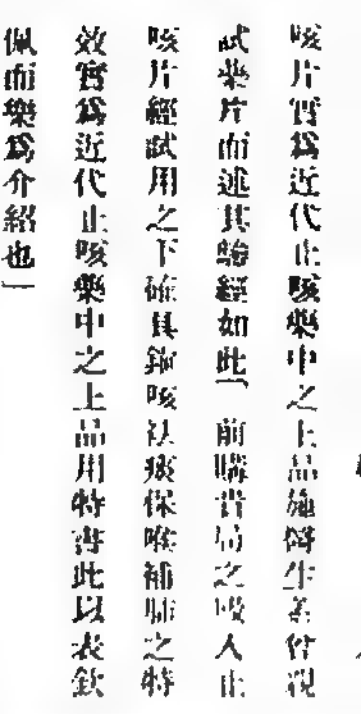 咳片實爲近代止咳藥中之上品施醫生善曾親
試藥片而述其驗經如此「前購貴局之吸入止
咳片經試用之下確具鎮咳祛痰保喉補肺之特
效實爲近代止咳藥中之上品用特書此以表欽
佩而樂爲介紹也」